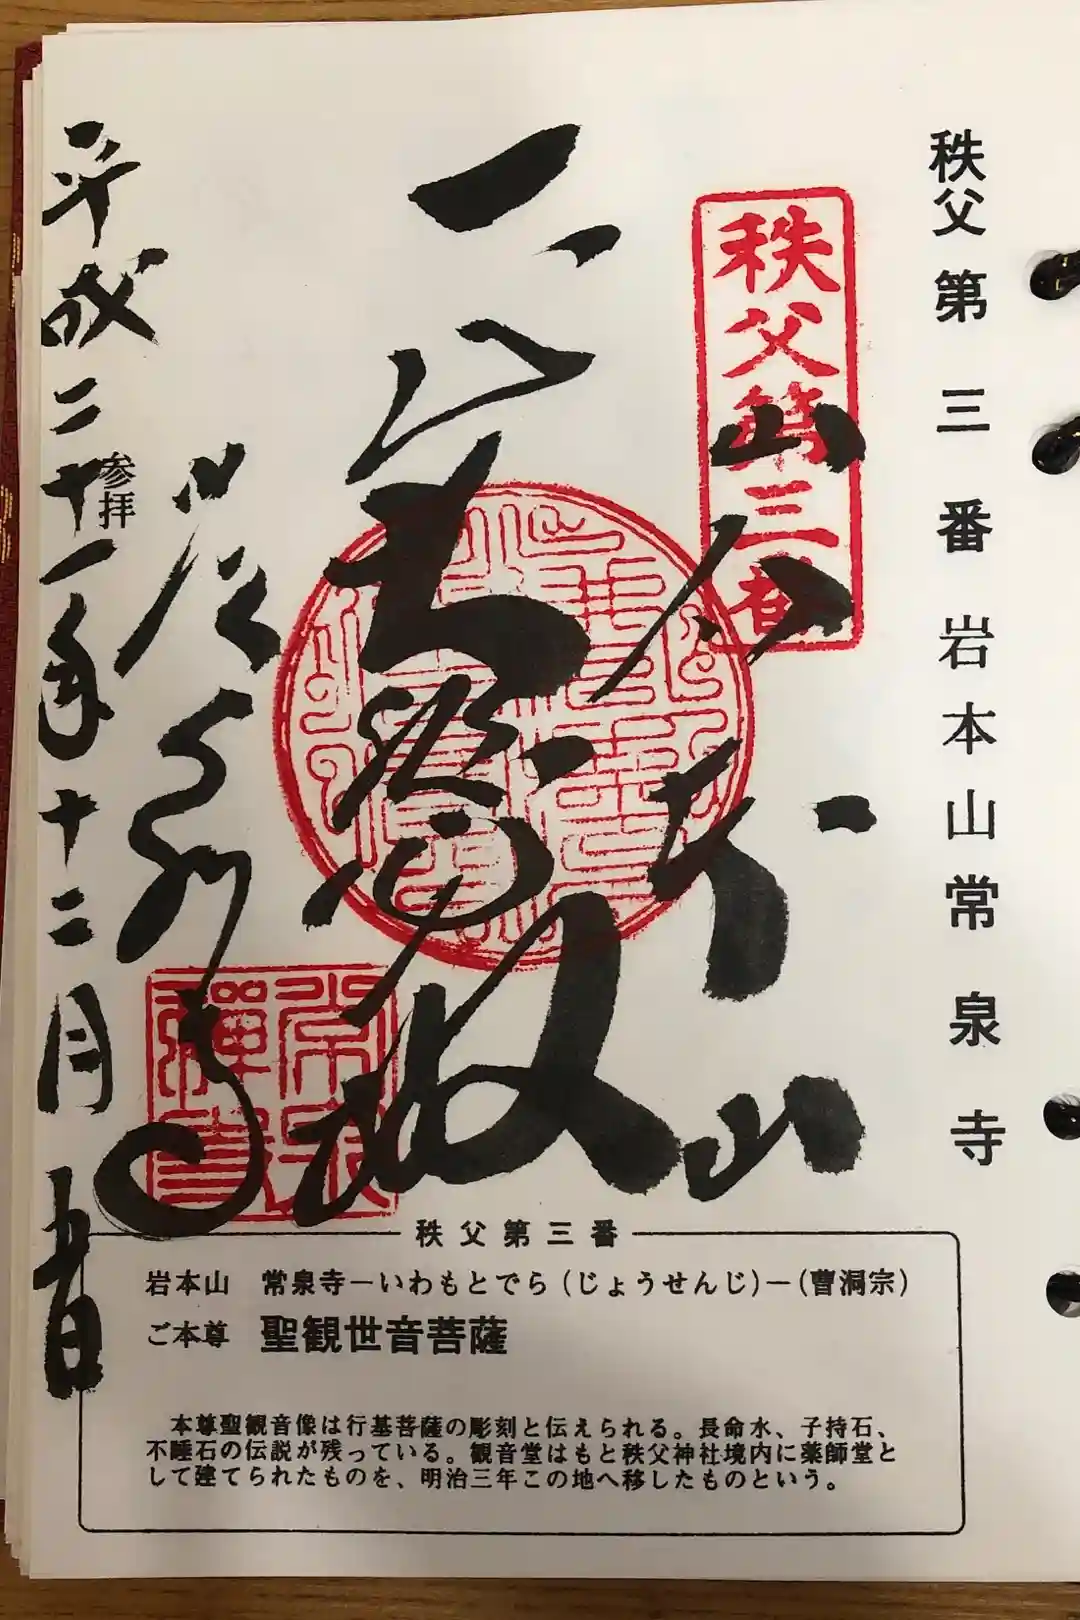 秩父第三番岩本山常泉寺
秩父第三番
山
本
山
参拝
平成二十一年十二月
秩父第三番
岩本山 常泉寺－いわもとでら(じょうせんじ)－(曹洞宗)
ご本尊 聖観世音菩薩
本尊聖観音像は行基菩薩の彫刻と伝えられる。長命水、子持石、
不睡石の伝説が残っている。観音堂はもと秩父神社境内に薬師堂と
して建てられたものを、明治三年この地へ移したものという。